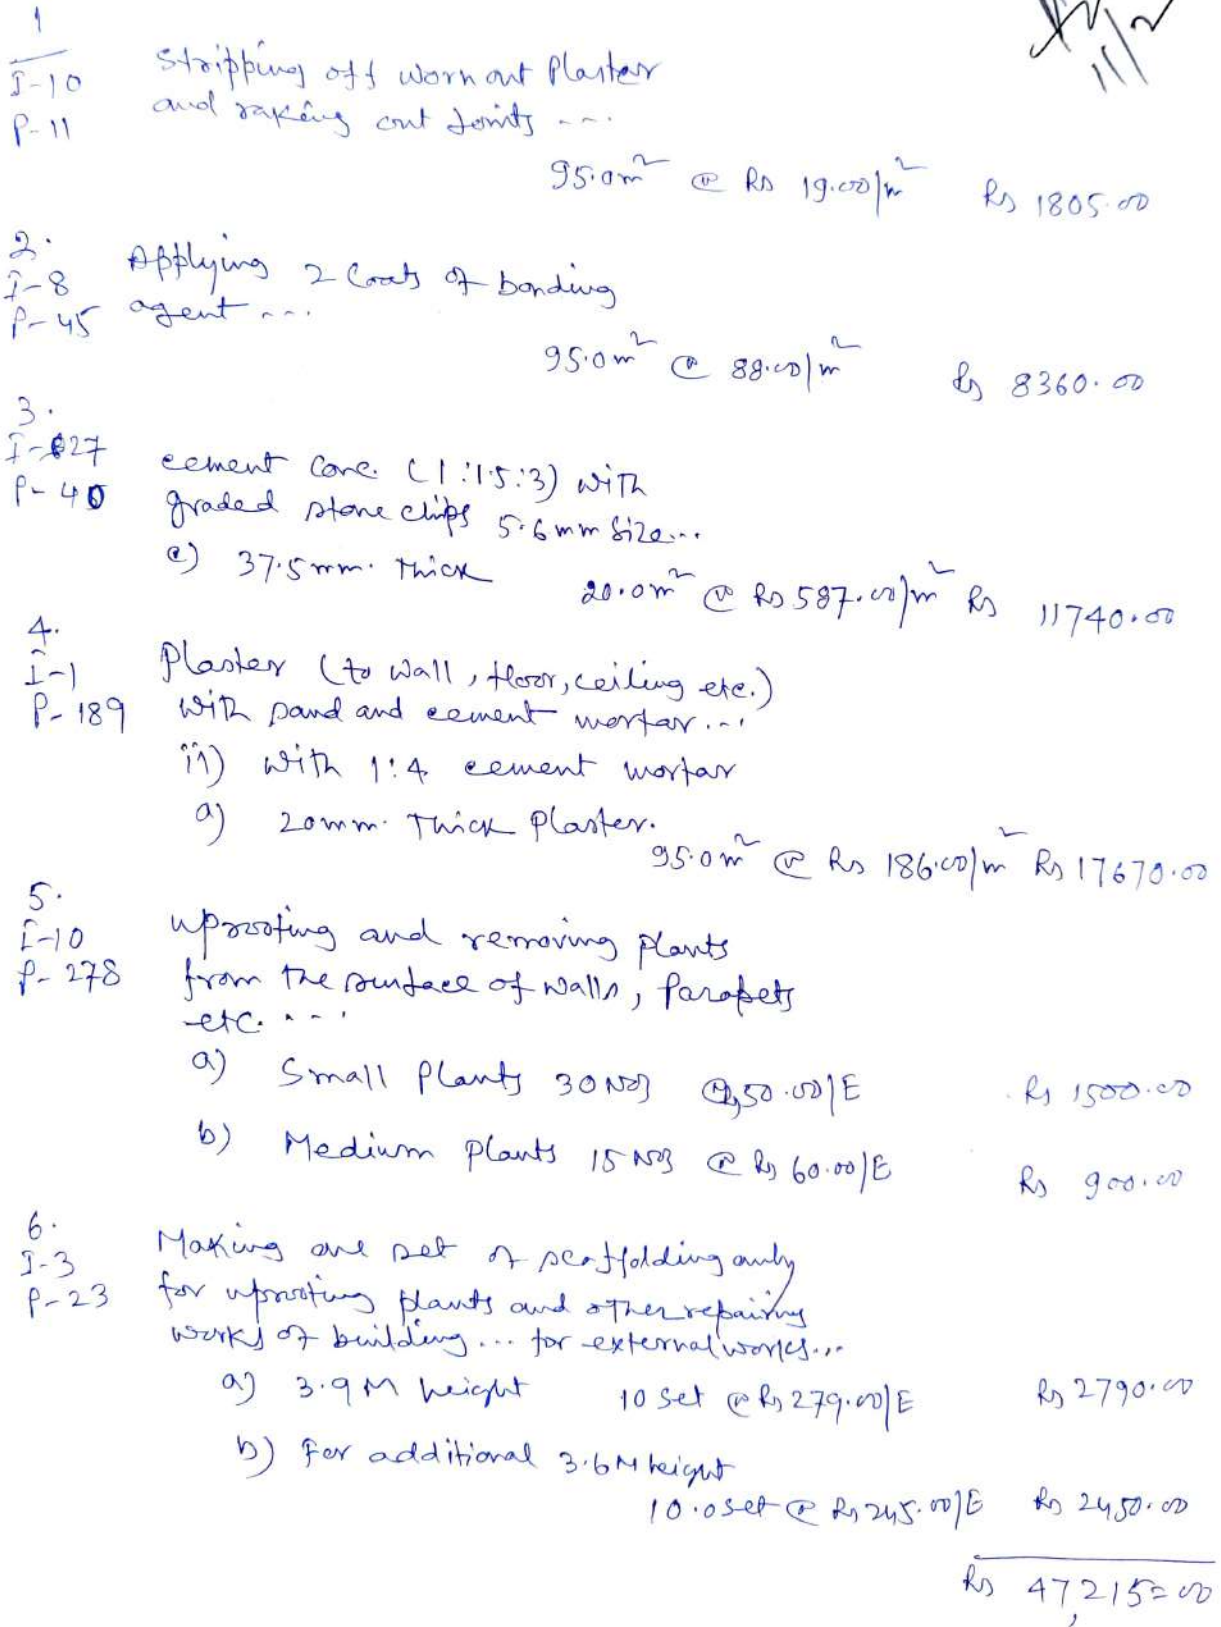 1
I-10
P-11
Stripping off worn out Plaster
and raking out Joints ...
95.0m² @ Rs 19.00/m² Rs 1805.00
2.
I-8
P-45
Applying 2 Coats of bonding
agent ...
95.0m² @ 88.00/m² Rs 8360.00
3.
I-27
P-40
cement Conc. (1:1.5:3) with
graded stone chips 5.6mm Size...
e) 37.5mm. Thick
20.0m² @ Rs 587.00/m² Rs 11740.00
4.
I-1
P-189
Plaster (to wall, floor, ceiling etc.)
with sand and cement mortar...
ii) with 1:4 cement mortar
a) 20mm. Thick Plaster.
95.0m² @ Rs 186.00/m² Rs 17670.00
5.
I-10
P-278
uprooting and removing plants
from the surface of walls, Parapets
etc. ...
a) Small Plants 30 Nos @ 50.00/E Rs 1500.00
b) Medium Plants 15 Nos @ Rs 60.00/E Rs 900.00
6.
I-3
P-23
Making one set of scaffolding only
for uprooting plants and other repairing
works of building... for external works...
a) 3.9M height 10 set @ Rs 279.00/E Rs 2790.00
b) For additional 3.6M height
10.0 set @ Rs 245.00/E Rs 2450.00
Rs 47,215=00